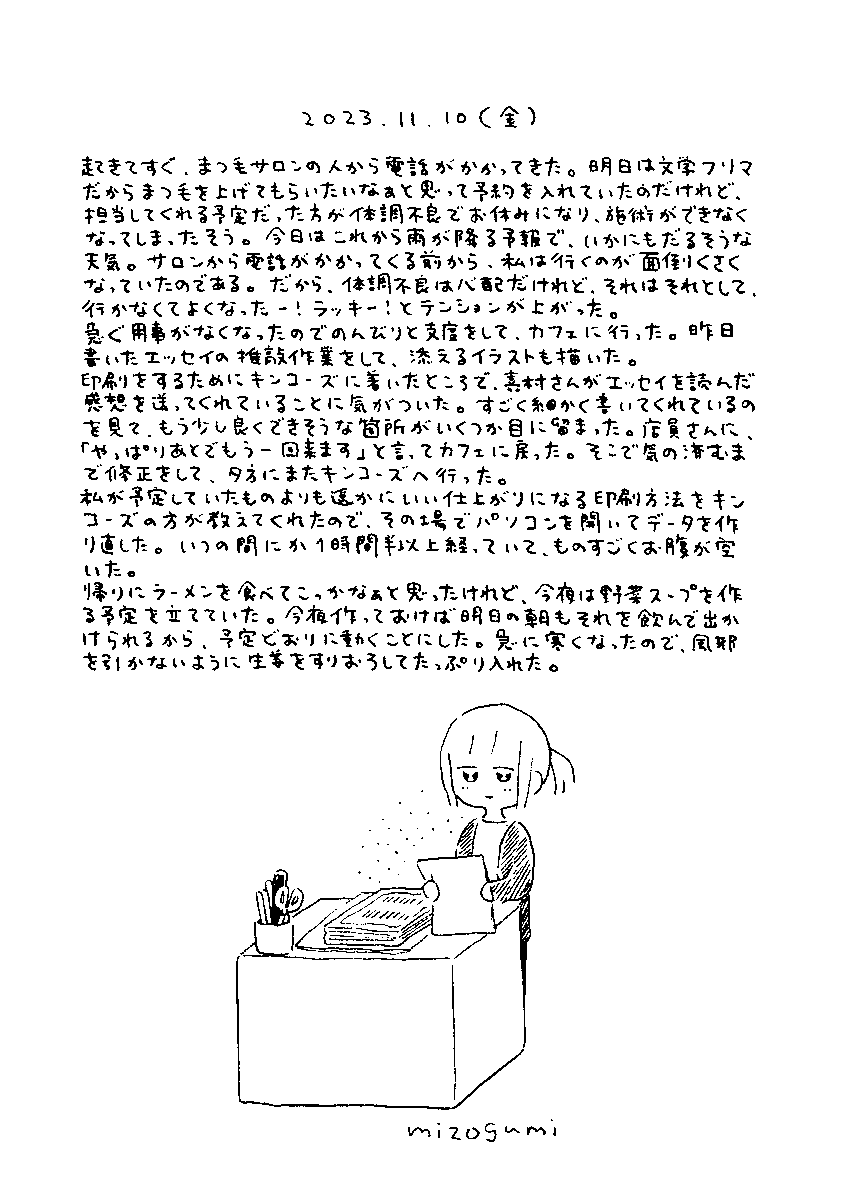 2023.11.10(金)
起きてすぐ、まつ毛サロンの人から電話がかかってきた。明日は文学フリマ
だからまつ毛を上げてもらいたいなぁと思って予約を入れていたのだけれど、
担当してくれる予定だった方が体調不良でお休みになり、施術ができなく
なってしまったそう。今日はこれから雨が降る予報で、いかにもだるそうな
天気。サロンから電話がかかってくる前から、私は行くのが面倒くさく
なっていたのである。だから、体調不良は心配だけれど、それはそれとして、
行かなくてよくなったー!ラッキー!とテンションが上がった。
急ぐ用事がなくなったのでのんびりと支度をして、カフェに行った。昨日
書いたエッセイの推敲作業をして、添えるイラストも描いた。
印刷をするためにキンコーズに着いたところで、真村さんがエッセイを読んだ
感想を送ってくれていることに気がついた。すごく細かく書いてくれているの
を見て、もう少し良くできそうな箇所がいくつか目に留まった。店員さんに、
「やっぱりあとでもう一回来ます」と言ってカフェに戻った。そこで気の済むま
で修正をして、夕方にまたキンコーズへ行った。
私が予定していたものよりも遥かにいい仕上がりになる印刷方法をキン
コーズの方が教えてくれたので、その場でパソコンを開いてデータを作
り直した。いつの間にか1時間半以上経っていて、ものすごくお腹が空
いた。
帰りにラーメンを食べてこっかなぁと思ったけれど、今夜は野菜スープを作
る予定を立てていた。今夜作っておけば明日の朝もそれを飲んで出か
けられるから、予定どおりに動くことにした。急に寒くなったので、風邪
を引かないように生姜をすりおろしてたっぷり入れた。
mizogumi